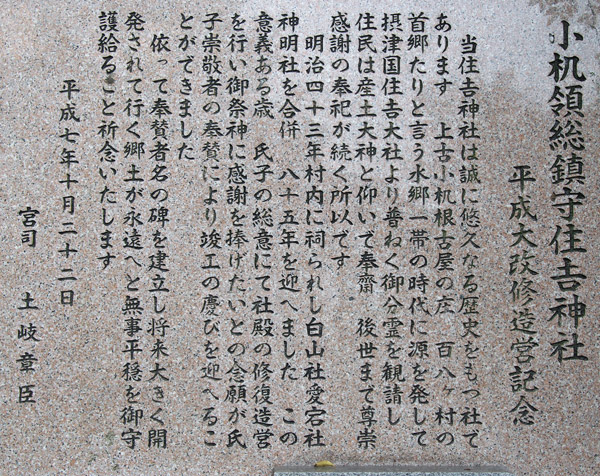 小机領総鎮守住吉神社
平成大改修造営記念
当住吉神社は誠に悠久なる歴史をもつ社で
あります　上古小机根古屋の庄　百八ヶ村の
首郷たりと言う水郷一帯の時代に源を発して
摂津国住吉大社より普ねく御分霊を観請し
住民は産土大神と仰いで奉齋　後世まで尊崇
感謝の奉祀が続く所以です
明治四十三年村内に祠られし白山社愛宕社
神明社を合併　八十五年を迎へました　この
意義ある歳　氏子の総意にて社殿の修復造営
を行い御祭神に感謝を捧げたいとの念願が氏
子崇敬者の奉賛により竣工の慶びを迎へるこ
とができました
依って奉賛者名の碑を建立し将来大きく開
発されて行く郷土が永遠へと無事平穏を御守
護給ること祈念いたします
平成七年十月二十二日
宮司　土岐章臣